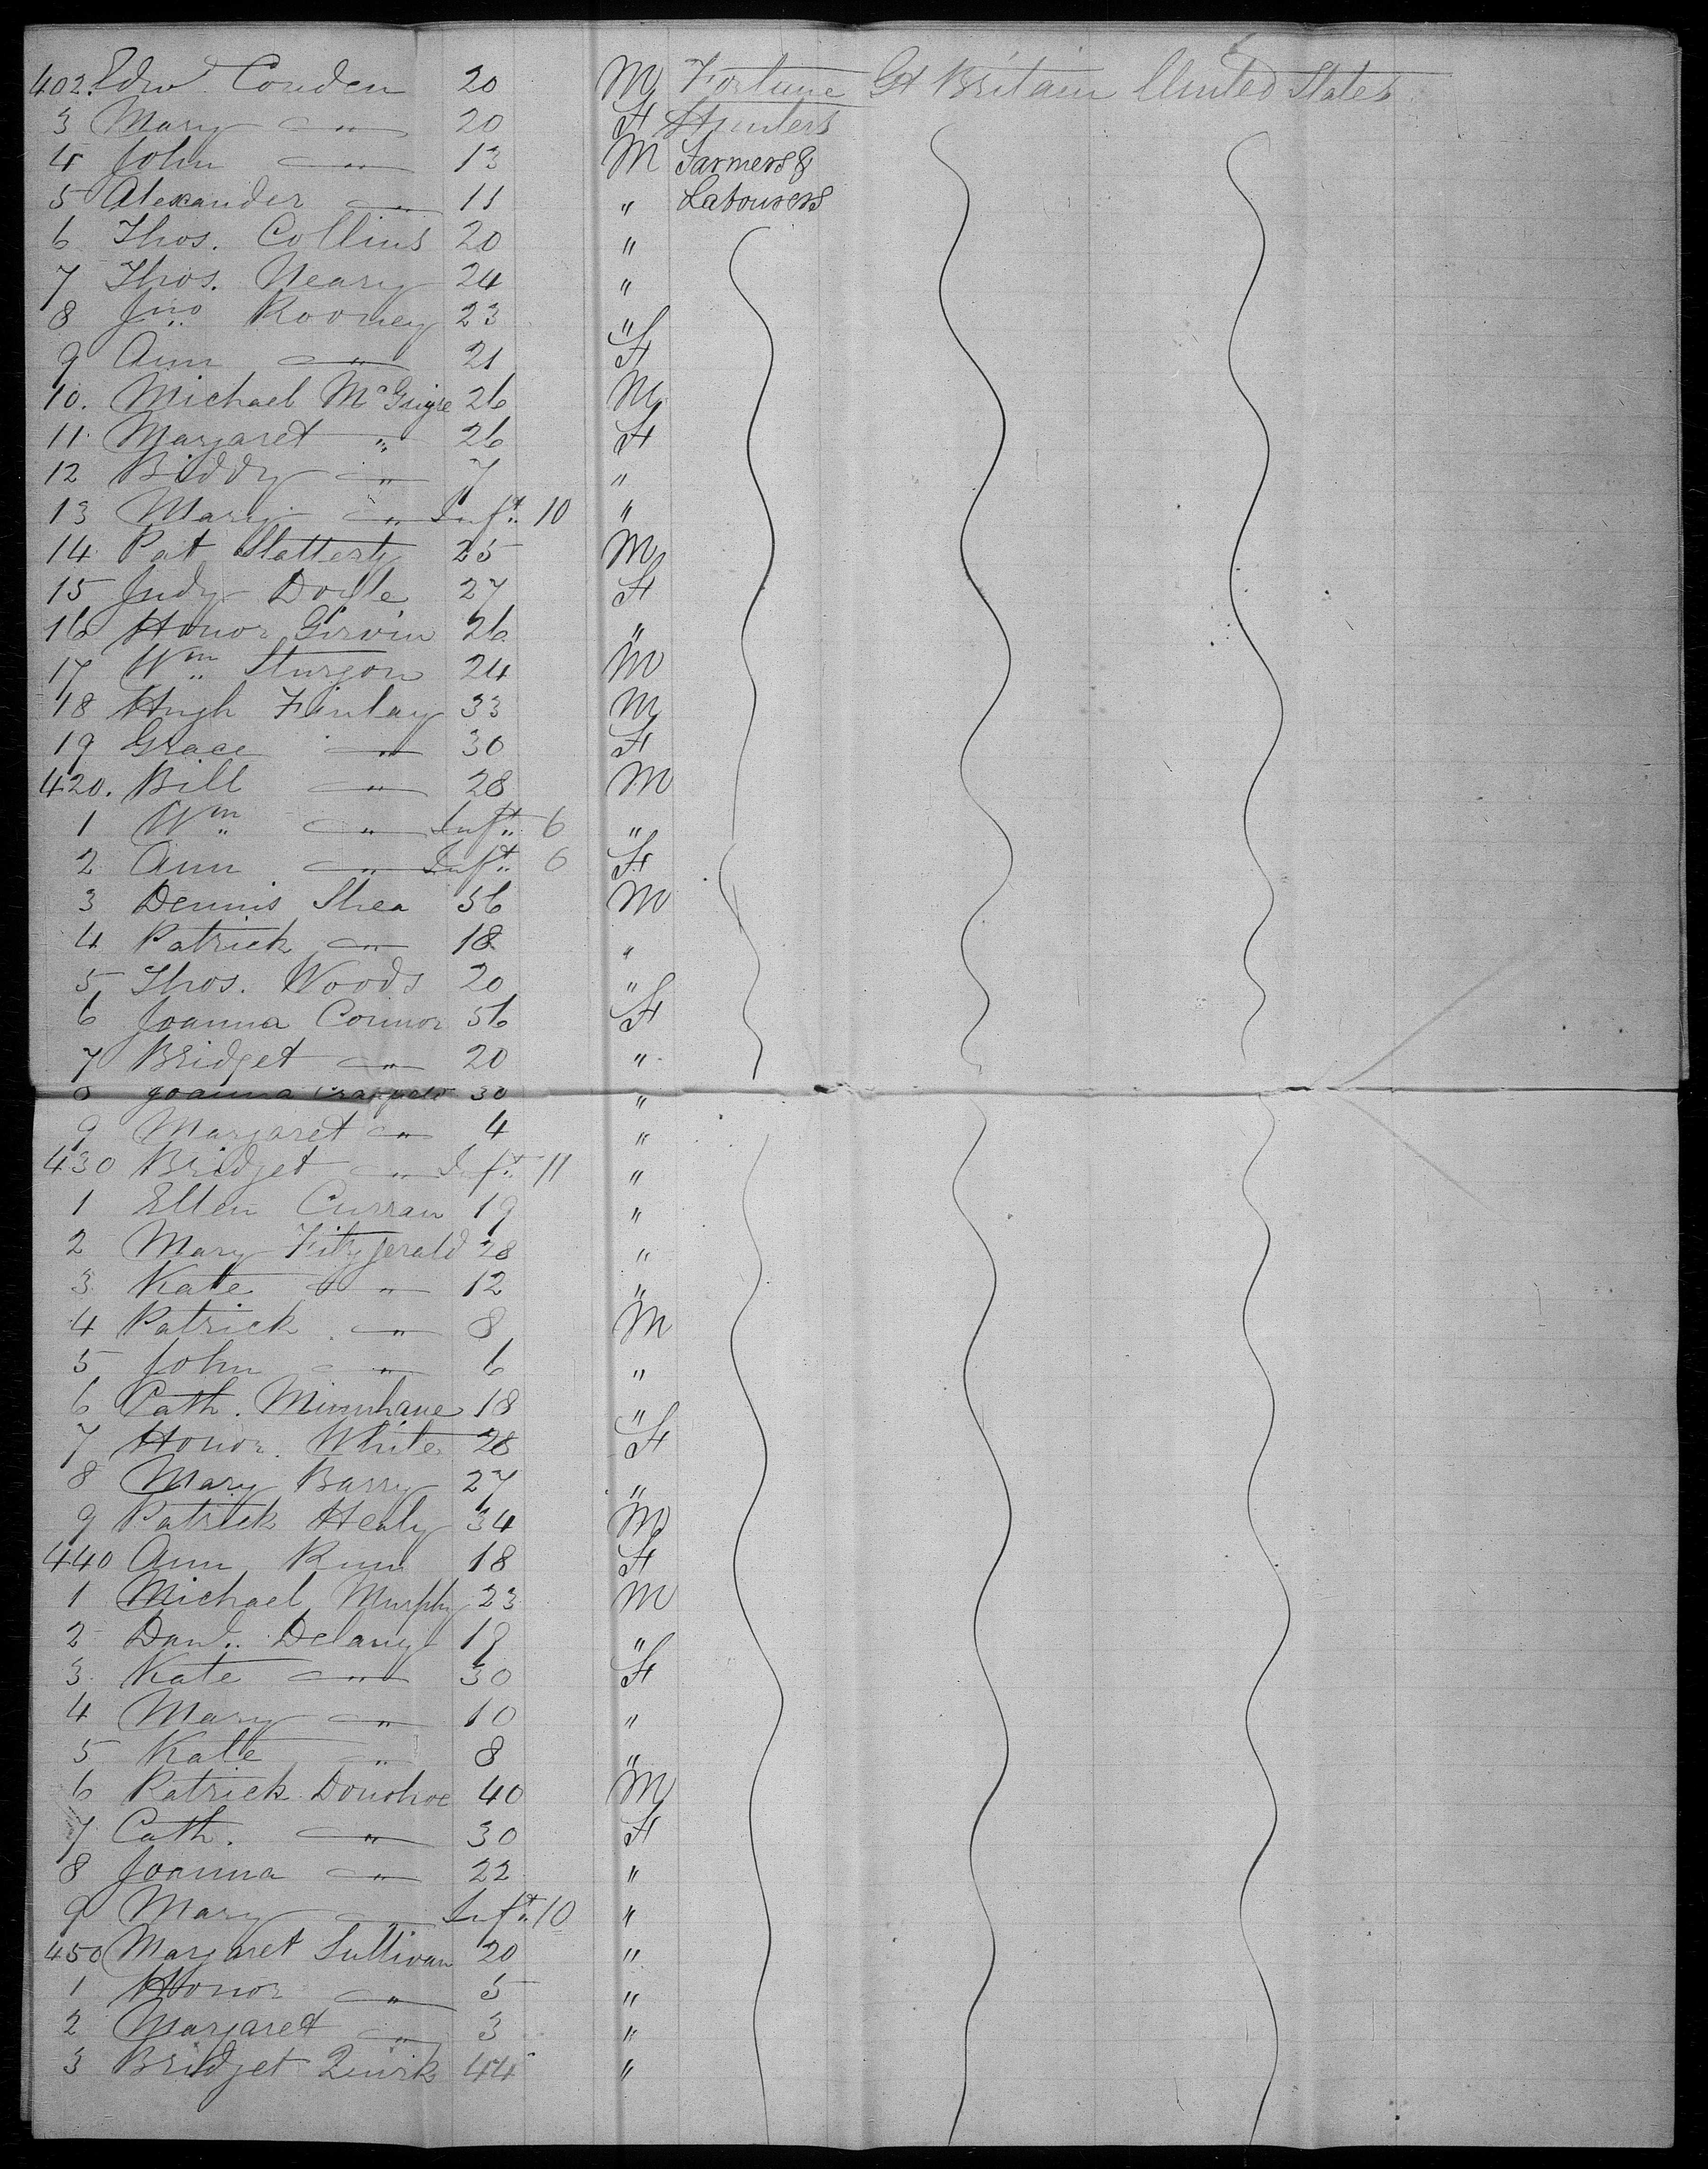 402. Edwd Conden 20 M Fortune Gt Britain United States
3 Mary " 20 F Hunters
4 John " 13 M Farmers &
5 Alexander " 11 " Labourers
6 Thos. Collins 20 "
7 Thos. Neary 24 "
8 Jno Rooney 23 "
9 Ann " 21 F
10. Michael McGuire 26 M
11. Margaret " 26 F
12 Biddy " 7 "
13 Mary " Inft 10 "
14 Pat Slattery 25 M
15 Judy Doile 27 F
16 Honor Girvin 26 "
17 Wm Sturgon 24 M
18 Hugh Finlay 33 M
19 Grace " 30 F
420. Bill " 28 M
1 Wm " Inft 6 "
2 Ann " Inft 6 F
3 Dennis Shea 56 M
4 Patrick " 18 "
5 Thos. Woods 20 "
6 Joanna Connor 56 F
7 Bridget " 20 "
8 Joanna 30 "
9 Margaret " 4 "
430 Bridget " Inft 11 "
1 Ellen Curran 19 "
2 Mary Fitzgerald 28 "
3 Kate " 12 "
4 Patrick " 8 M
5 John " 6 "
6 Cath. Minnhane 18 "
7 Honor White 28 F
8 Mary Barry 27 "
9 Patrick Healy 34 M
440 Ann 18 F
1 Michael Murphy 23 M
2 Danl. Delany 19 "
3 Kate " 30 F
4 Mary " 10 "
5 Kate " 8 "
6 Patrick Donohoe 40 M
7 Cath. " 30 F
8 Joanna " 22 "
9 Mary Inft 10 "
450 Margaret Sullivan 20 "
1 Honor " 5 "
2 Margaret " 3 "
3 Bridget Quirk 44 "